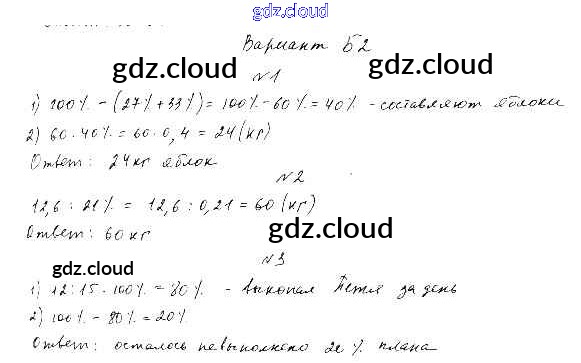 gdz.cloud
Вариант Б2
gdz.cloud gdz.cloud
№1
1) 100% - (27% + 33%) = 100% - 60% = 40% - составляют яблоки
2) 60 · 40% = 60 · 0,4 = 24 (кг)
Ответ: 24 кг яблок
№2
12,6 : 21% = 12,6 : 0,21 = 60 (кг)
gdz.cloud
Ответ: 60 кг
№3
gdz.cloud
1) 12 : 15 · 100% = 80% - выкопал Петя за день
2) 100% - 80% = 20%
gdz.cloud
Ответ: осталось невыполнено 20% плана